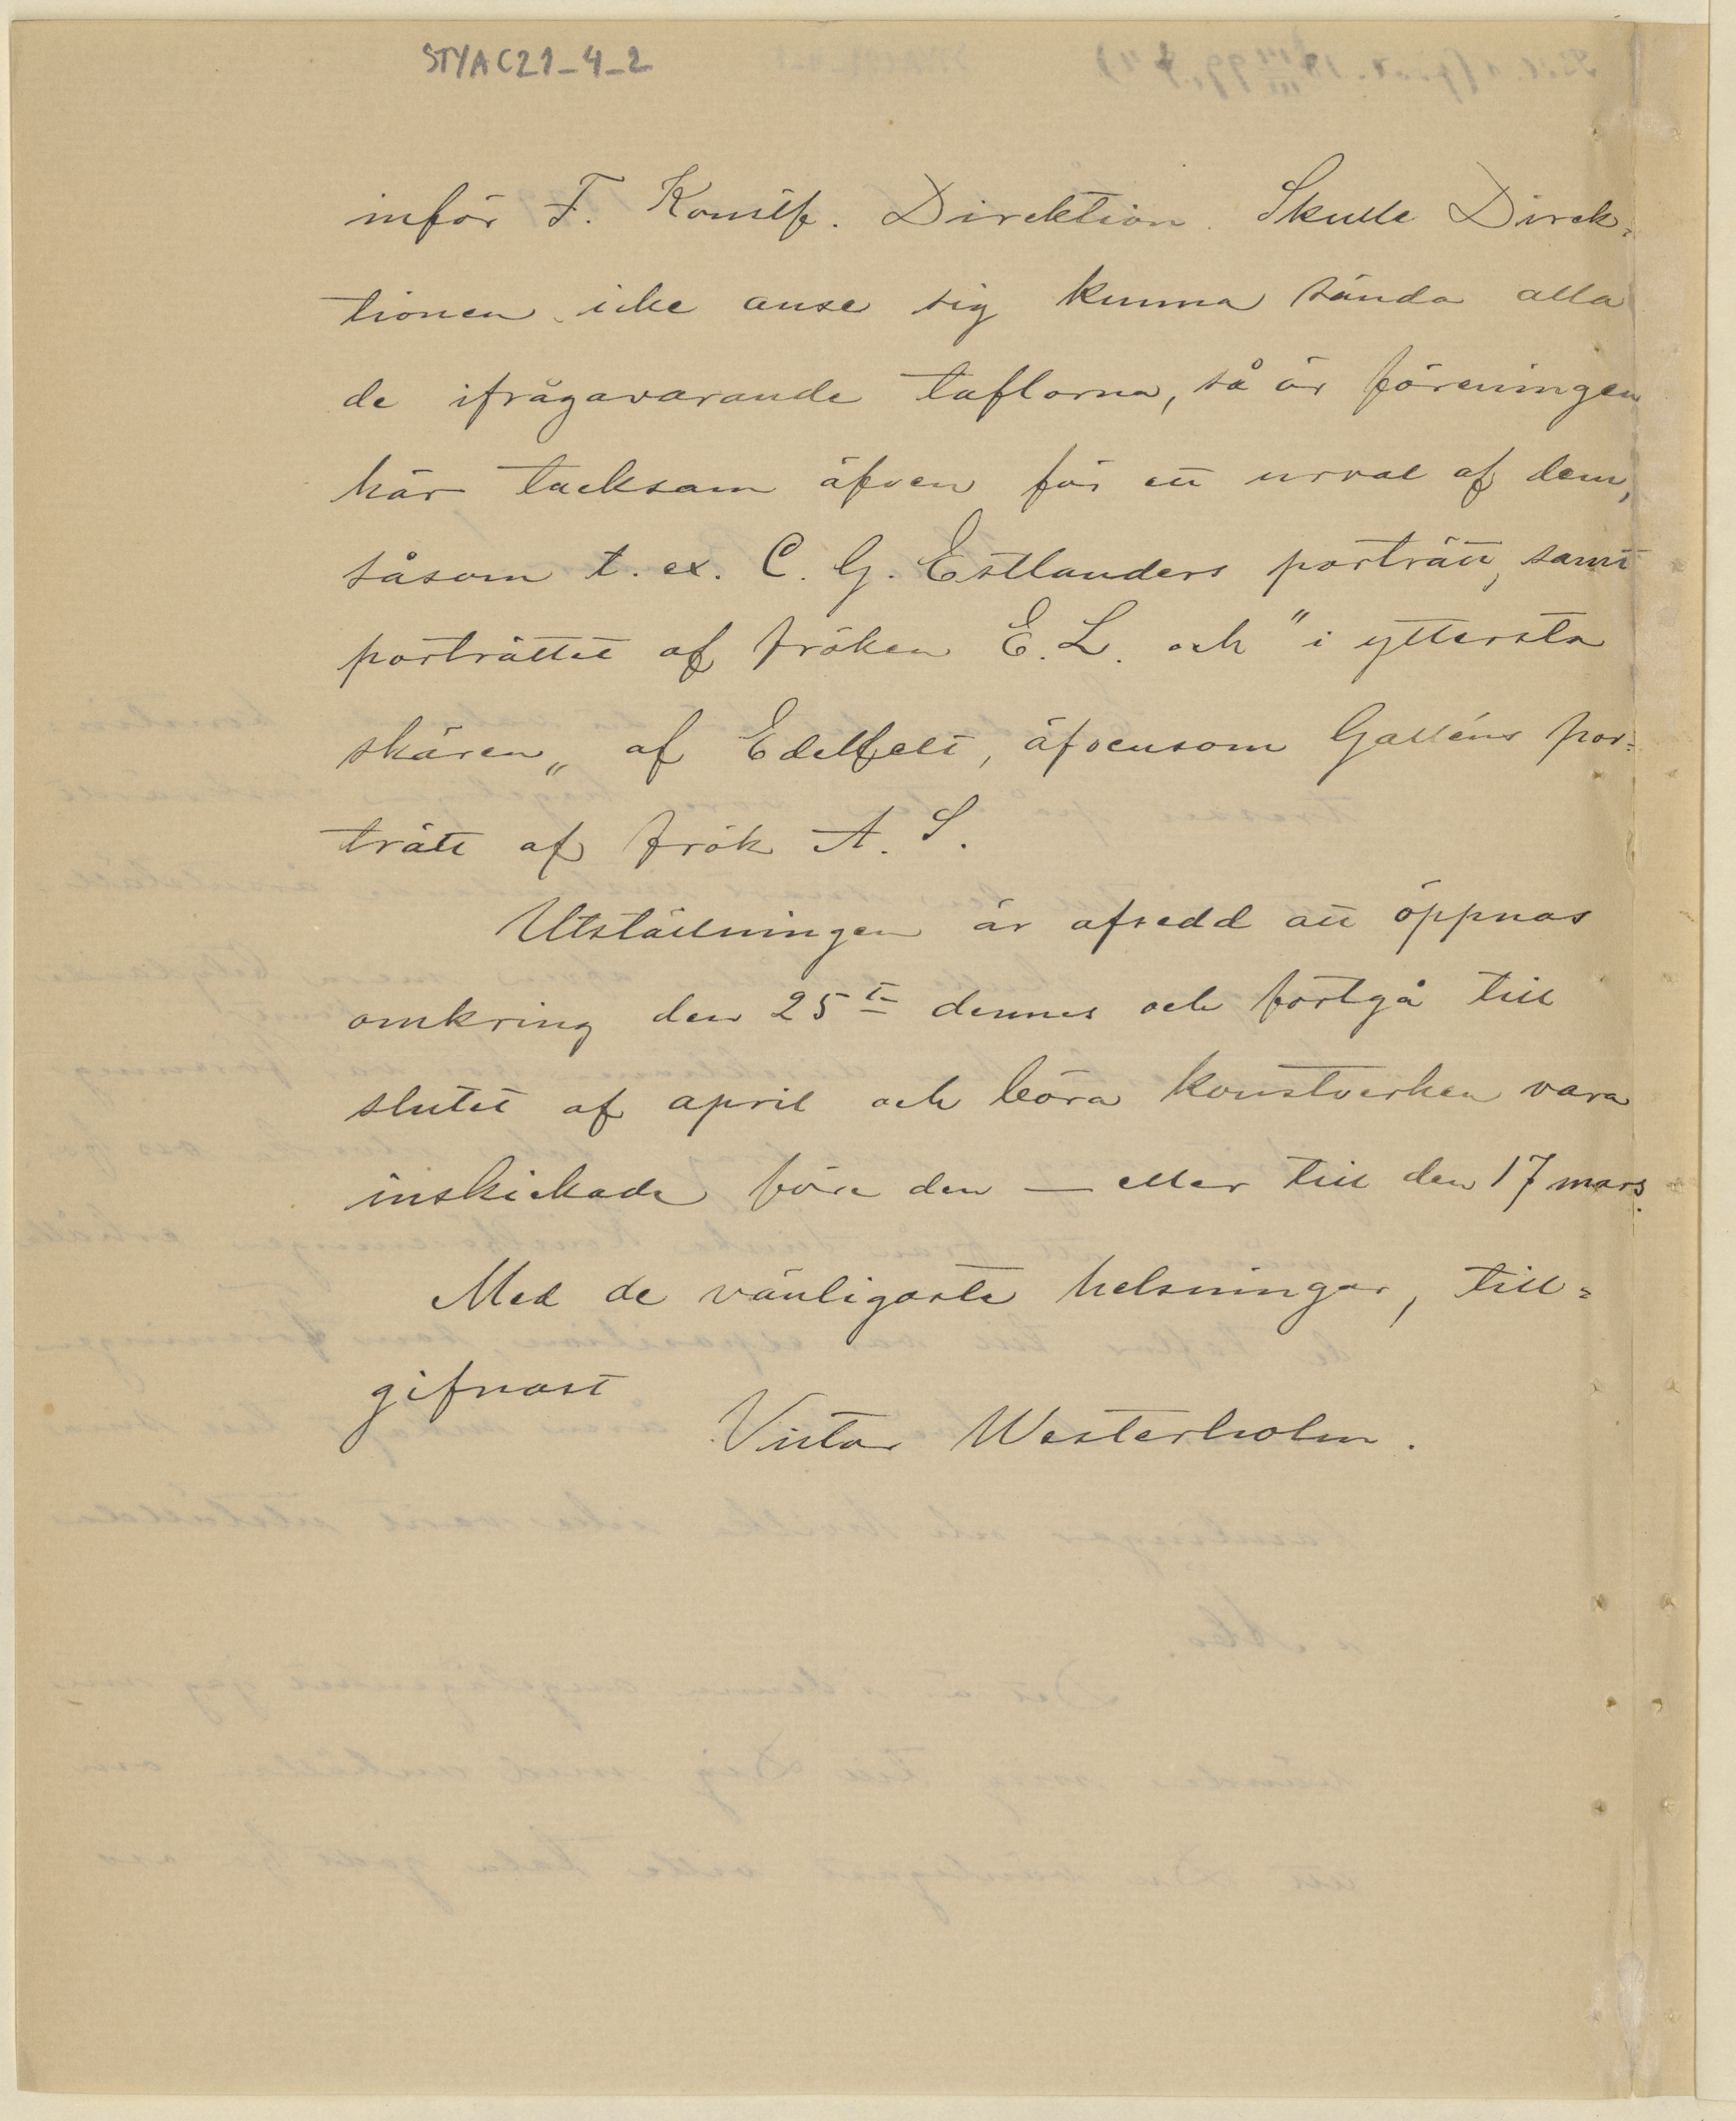 STYAC21_4_2
inför F. Konstf. Direktion. Skulle Direk=
tionen icke anse sig kunna sända alla
de ifrågavarande taflorna, så är föreningen
här tacksam äfven för ett urval af dem,
såsom t. ex. C. G. Estlanders porträtt, samt
porträttet af fröken E. L. och "i yttersta
skären„ af Edelfelt, äfvensom Galléns por=
trätt af frök A. S.
Utställningen är afsedd att öppnas
omkring den 25te dennes och fortgå till
slutet af april och böra konstverken vara
inskickade före den — eller till den 17 mars.
Med de vänligaste helsningar, till=
gifnast
Victor Westerholm.